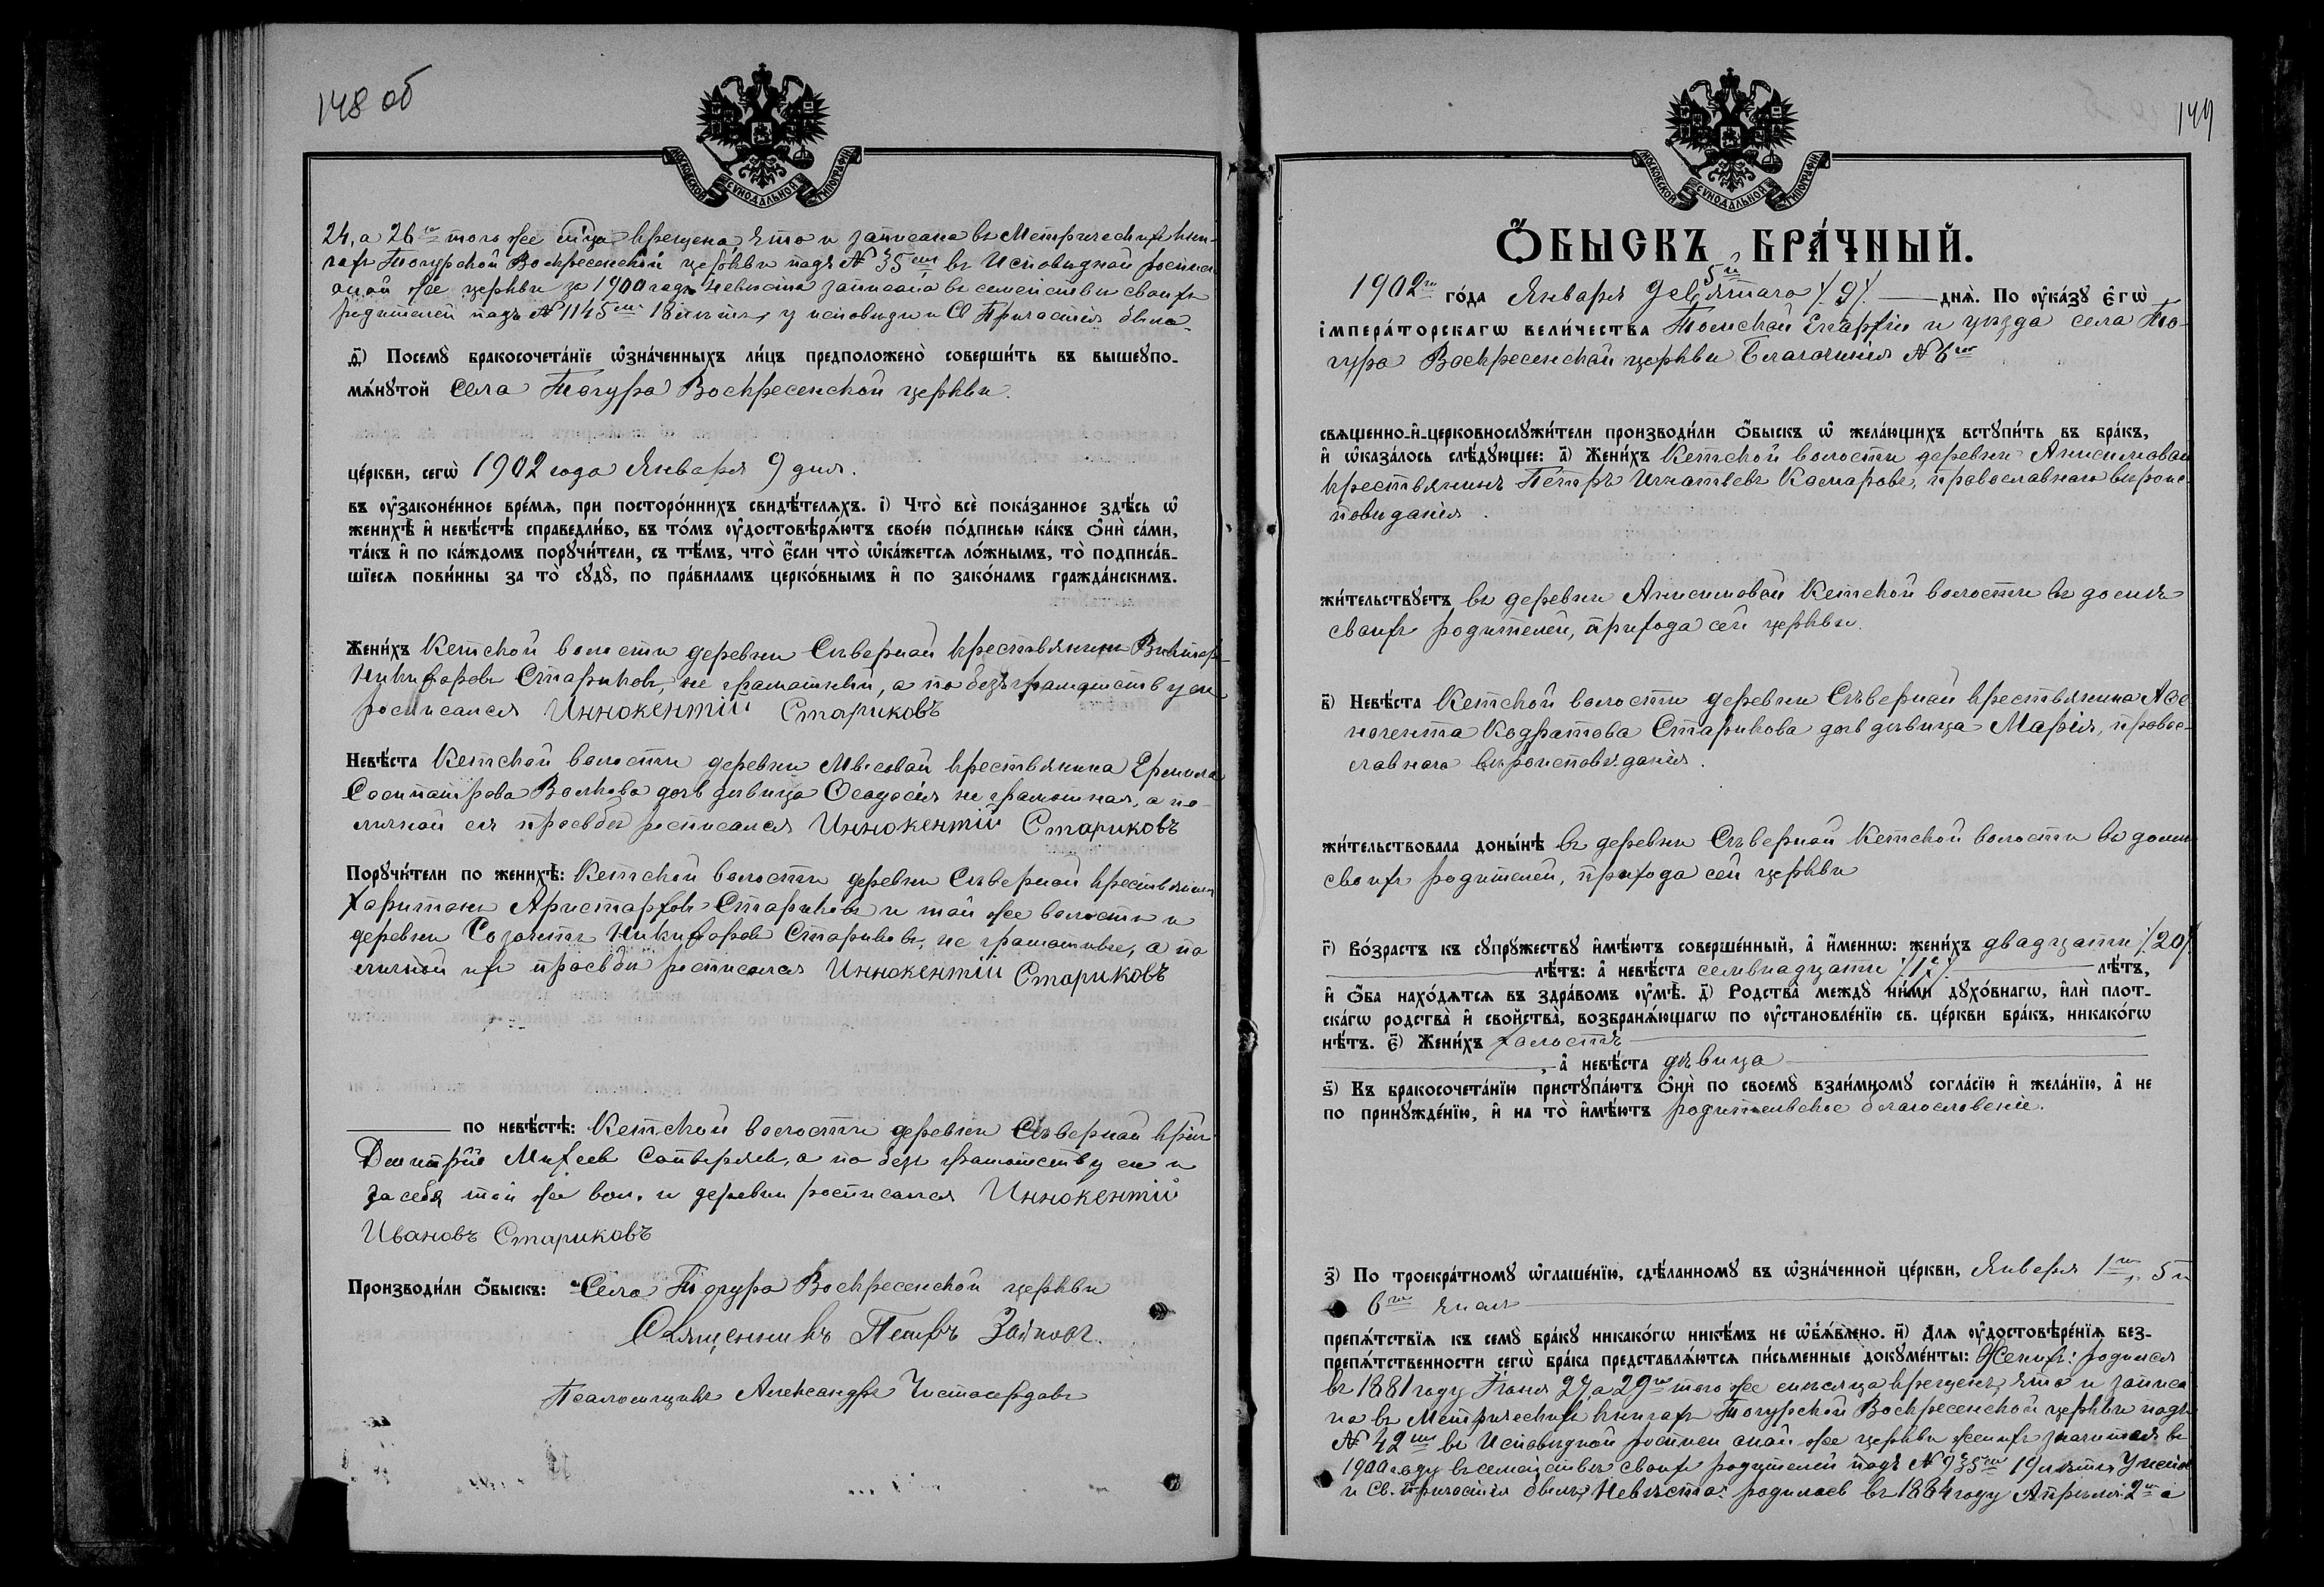 148 об
МОСКОВСКОЙ СѴНОДАЛЬНОЙ ТИПОГРАФІИ
24, а 26го того же м-ца крещена, что и записана въ Метрическихъ кни-
гахъ Тогурской Воскресенской церкви подъ № 35мъ въ Исповедной росписи
оной же церкви за 1900 годъ невеста записана въ семействе своихъ
родителей подъ № 1145мъ 18 летъ, у исповеди и Св Причастія была.
ѳ҃) Посемꙋ̀ бракосочета́нїе ѡ҆зна́ченныхъ ли́цъ предположено̀ соверши́ть въ вышеꙋпо-
мѧ́нꙋтой села Тогура Воскресенской церкви.
це́ркви, сегѡ̀ 1902 года Января 9 дня.
въ ᲂу҆законе́нное вре́мѧ, при посторо́ннихъ свидѣ́телѧхъ. і҃) Что̀ всѐ пока́занное здѣ́сь ѡ҆
женихѣ̀ и҆ невѣ́стѣ справедли́во, въ то́мъ ᲂу҆достовѣрѧ́ютъ свое́ю по́дписью ка́къ ѻ҆нѝ са́ми,
та́къ и҆ по ка́ждомъ порꙋчи́тели, съ тѣ́мъ, что̀ є҆́сли что̀ ѡ҆ка́жетсѧ ло́жнымъ, то̀ подписа́в-
шїесѧ пови́нны за то̀ сꙋдꙋ̀, по пра́виламъ церко́внымъ и҆ по зако́намъ гражда́нскимъ.
Жени́хъ Кетской волости деревни Северной крестьянинъ Викторъ
Никифоровъ Стариковъ, не грамотный, а по безграмотству его
росписался Иннокентій Стариковъ
Невѣ́ста Кетской волости деревни Мысовой крестьянина Ермила
Сосипатрова Волкова дочь девица Феодосія не грамотная, а по
личной ея просьбе росписался Иннокентій Стариковъ
Порꙋчи́тели по женихѣ̀: Кетской волости деревни Северной крестьянин
Харитонъ Аристарховъ Стариковъ и той же волости и
деревни Созонтъ Никифоровъ Стариковъ, не грамотные, а по
личной ихъ просьбе росписался Иннокентій Стариковъ
по невѣ́стѣ: Кетской волости деревни Северной крест
Дмитрій Михеев а по безграмотству его и
за себя той же вол. и деревни росписался Иннокентій
Ивановъ Стариковъ
Производи́ли ѻ҆́быскъ: Села Тогура Воскресенской церкви
Священникъ Петръ Зайковъ.
Псаломщикъ Александръ Чистосердовъ
149
МОСКОВСКОЙ СѴНОДАЛЬНОЙ ТИПОГРАФІИ
Ѻ҆́БЫСКЪ БРА́ЧНЫЙ.
1902го го́да Января девятаго /9/. днѧ̀. По ᲂу҆ка́зꙋ є҆гѡ̀
і҆мпера́торскагѡ вели́чества Томской Епархіи и уезда села То-
гура Воскресенской церкви Благочинія № 6го
свѧщенно-и҆-церковнослꙋжи́тели производи́ли ѻ҆́быскъ ѡ҆ жела́ющихъ встꙋпи́ть въ бра́къ,
и҆ ѡ҆каза́лось слѣ́дꙋющее: а҃) Жени́хъ Кетской волости деревни Анисимовой
крестьянинъ Петръ Игнатьевъ Комаровъ, православнаго вероис-
поведанія.
жи́тельствꙋетъ въ деревни Анисимовой Кетской волости въ доме
своихъ родителей, прихода сей церкви.
в҃) Невѣ́ста Кетской волости деревни Северной крестьянина
Кодратова Старикова дочь девица Марія, правос-
лавнаго вероисповеданія.
жи́тельствовала доны́нѣ въ деревни Северной Кетской волости въ доме
своихъ родителей, прихода сей церкви
г҃) Во́зрастъ къ сꙋпрꙋ́жествꙋ и҆мѣ́ютъ соверше́нный, а҆ и҆́меннѡ: жени́хъ двадцати /20/.
лѣ́тъ: а҆ невѣ́ста семнадцати /17/. лѣ́тъ,
и҆ ѻ҆́ба нахо́дѧтсѧ въ здра́вомъ ᲂу҆мѣ̀. д҃) Родства̀ междꙋ̀ ни́ми дꙋхо́внагѡ, и҆лѝ плот-
ска́гѡ родства̀ и҆ свойства̀, возбранѧ́ющагѡ по ᲂу҆становле́нїю св. це́ркви бра́къ, никако́гѡ
нѣ́тъ. є҃) Жени́хъ холостъ
, а҆ невѣ́ста девица
ѕ҃) Къ бракосочета́нїю пристꙋпа́ютъ ѻ҆нѝ по своемꙋ̀ взаи́мномꙋ согла́сїю и҆ жела́нїю, а҆ не
по принꙋжде́нїю, и҆ на то̀ и҆мѣ́ютъ родительское благословеніе.
з҃) По троекра́тномꙋ ѡ҆глаше́нїю, сдѣ́ланномꙋ въ ѡ҆зна́ченной це́ркви, Января 1го, 5 и
6го
препѧ́тствїѧ къ семꙋ̀ бра́кꙋ никако́гѡ никѣ́мъ не ѡ҆б̾ѧ́влено. и҃) Длѧ ᲂу҆достовѣре́нїѧ без-
препѧ́тственности сегѡ̀ бра́ка представлѧ́ютсѧ пи́сьменные докꙋме́нты: Женихъ: родился
въ 1881 году Іюня 27, а 29го того же месяца крещенъ, что и записа
но въ Метрическихъ книгахъ Тогурской Воскресенской церкви подъ
№ 42мъ въ Исповедной росписи оной же церкви женихъ значится въ
1900 году въ семействе своихъ родителей подъ № 935мъ 19 летъ У испов
и Св. причастія былъ, Невеста: родилась въ 1884 году Апреля 2го а